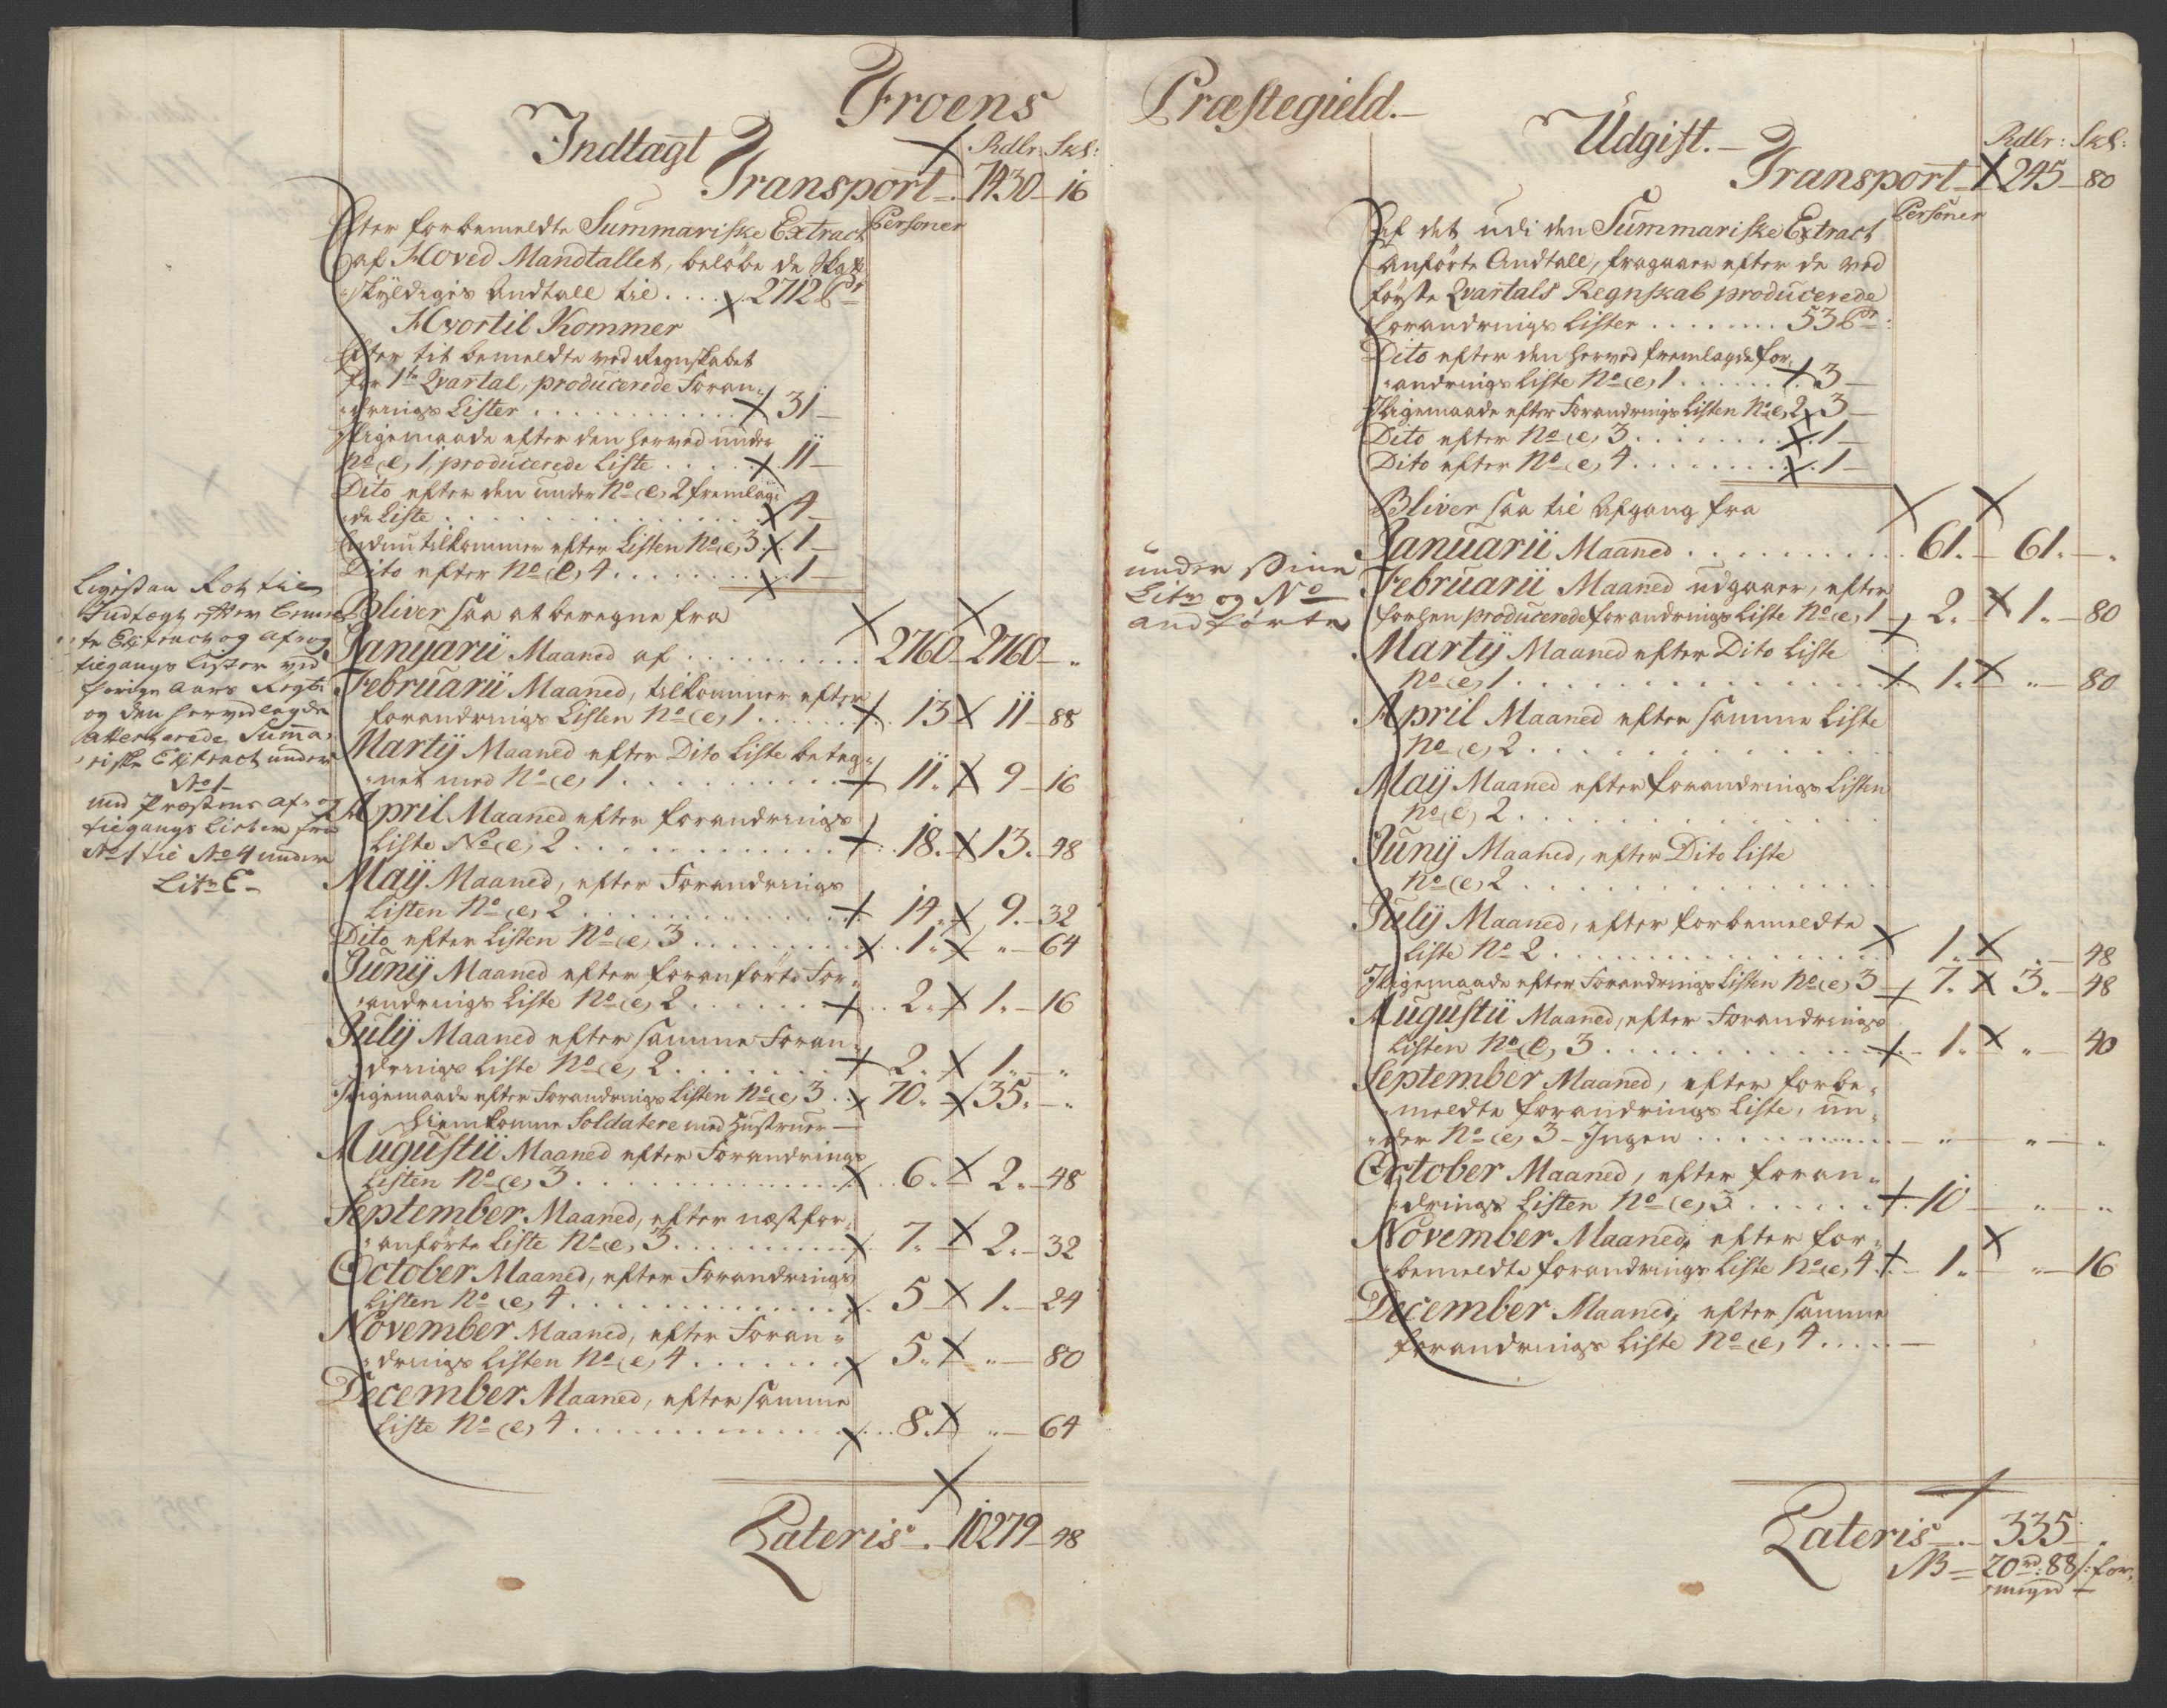 Froens
Indtægt
Rdlr: Skl:
Transport. 7430 16
Personer
Efter forbemeldte Summariske Extract
af Hoved Mandtallet, beløbe de Skat¬
skyldiges Andtall til . . . . 2712 Pr
Hvortil Kommer
Efter tit bemeldte ved Regnskabet
for 1te Qvartal, producerede Foran¬
drings Lister . . . . 31
Iligemaade efter den herved under
No (e) 1, producerede Liste . . . . 11
Dito efter den under No (e) 2 fremlag¬
de Liste . . . . 4
Endnu tilkommer efter Listen No (e) 3 . . 1
Dito efter No (e) 4 . . . . 1
Bliver saa at beregne fra
Januarii Maaned af . . . . 2760 2760 "
Februarii Maaned, tilkommer efter
forandrings Listen No (e) 1 . . . . 13 11 88
Martij Maaned efter Dito Liste beteg¬
net med No (e) 1 . . . . 11 9 16
April Maaned efter forandrings
Liste No (e) 2 . . . . 18 13 48
Maij Maaned, efter Forandrings
Listen No (e) 2 . . . . 14 9 32
Dito efter Listen No (e) 3 . . . . 1 " 64
Junij Maaned efter foranførte For¬
andrings Liste No (e) 2 . . . . 2 1 16
Julij Maaned efter samme Foran¬
drings Liste No (e) 2 . . . . 2 1 "
Iligemaade efter Forandrings Listen No (e) 3 . . 70 35 "
Hiemkomne Soldatere med Hustruer
Augustii Maaned efter Forandrings
Listen No (e) 3 . . . . 6 2 48
September Maaned, efter næstfor¬
anførte Liste No (e) 3 . . . . 7 2 32
October Maaned, efter Forandrings
Listen No (e) 4 . . . . 5 1 24
November Maaned, efter Foran¬
drings Listen No (e) 4 . . . . 5 " 80
December Maaned, efter samme
Liste No (e) 4 . . . . 8 " 64
Lateris . 10279 48
Ligesaa Ret til
Indtægt efter
Extract og af og
tilgangs Lister ved
forige Aars Regn
og den hervedlagde
attesterede Summa¬
riske Extract under
No 1
med Præstens af og
tilgangs Lister fra
No 1 til No 4 under
Litr E
Præstegield.
Udgift.
Rdlr: Skl:
Transport 245 80
Personer
Af det udi den Summariske Extract
Anførte Andtall, fragaaer efter de ved
første Qvartals Regnskab producerede
forandrings Lister . . . . 53 Pr:
Dito efter den herved fremlagde for¬
andrings Liste No (e) 1 . . . . 3
Iligemaade efter Forandrings Listen No (e) 2 3
Dito efter No (e) 3 . . . . 1
Dito efter No (e) 4 . . . . 1
Bliver saa til Afgang fra
Januarii Maaned . . . . 61 61 "
Februarii Maaned udgaaer, efter
forhen producerede forandrings Liste No (e) 1 2 1 80
Martij Maaned efter Dito Liste
No (e) 1 . . . . 1 " 80
April Maaned efter samme Liste
No (e) 2 . . . .
Maij Maaned efter forandrings Listen
No (e) 2 . . . .
Junij Maaned, efter Dito Liste
No (e) 2 . . . .
Julij Maaned, efter forbemeldte
Liste No 2 . . . . 1 " 48
Iligemaade efter Forandrings Listen No (e) 3 7 3 48
Augustii Maaned, efter Forandrings
Listen No (e) 3 . . . . 1 " 40
September Maaned, efter forbe¬
meldte forandrings Liste, un¬
der No (e) 3 - Ingen . . . . " " "
October Maaned, efter foran¬
drings Listen No (e) 3 . . . . 10 " "
November Maaned, efter for¬
bemeldte forandrings Liste No (e) 4 . . 1 " 16
December Maaned, efter samme
forandrings Liste No (e) 4 . . . .
Lateris . 335 "
NB 20 rd: 88 s: for
under Sine
Litr og No
Andførte